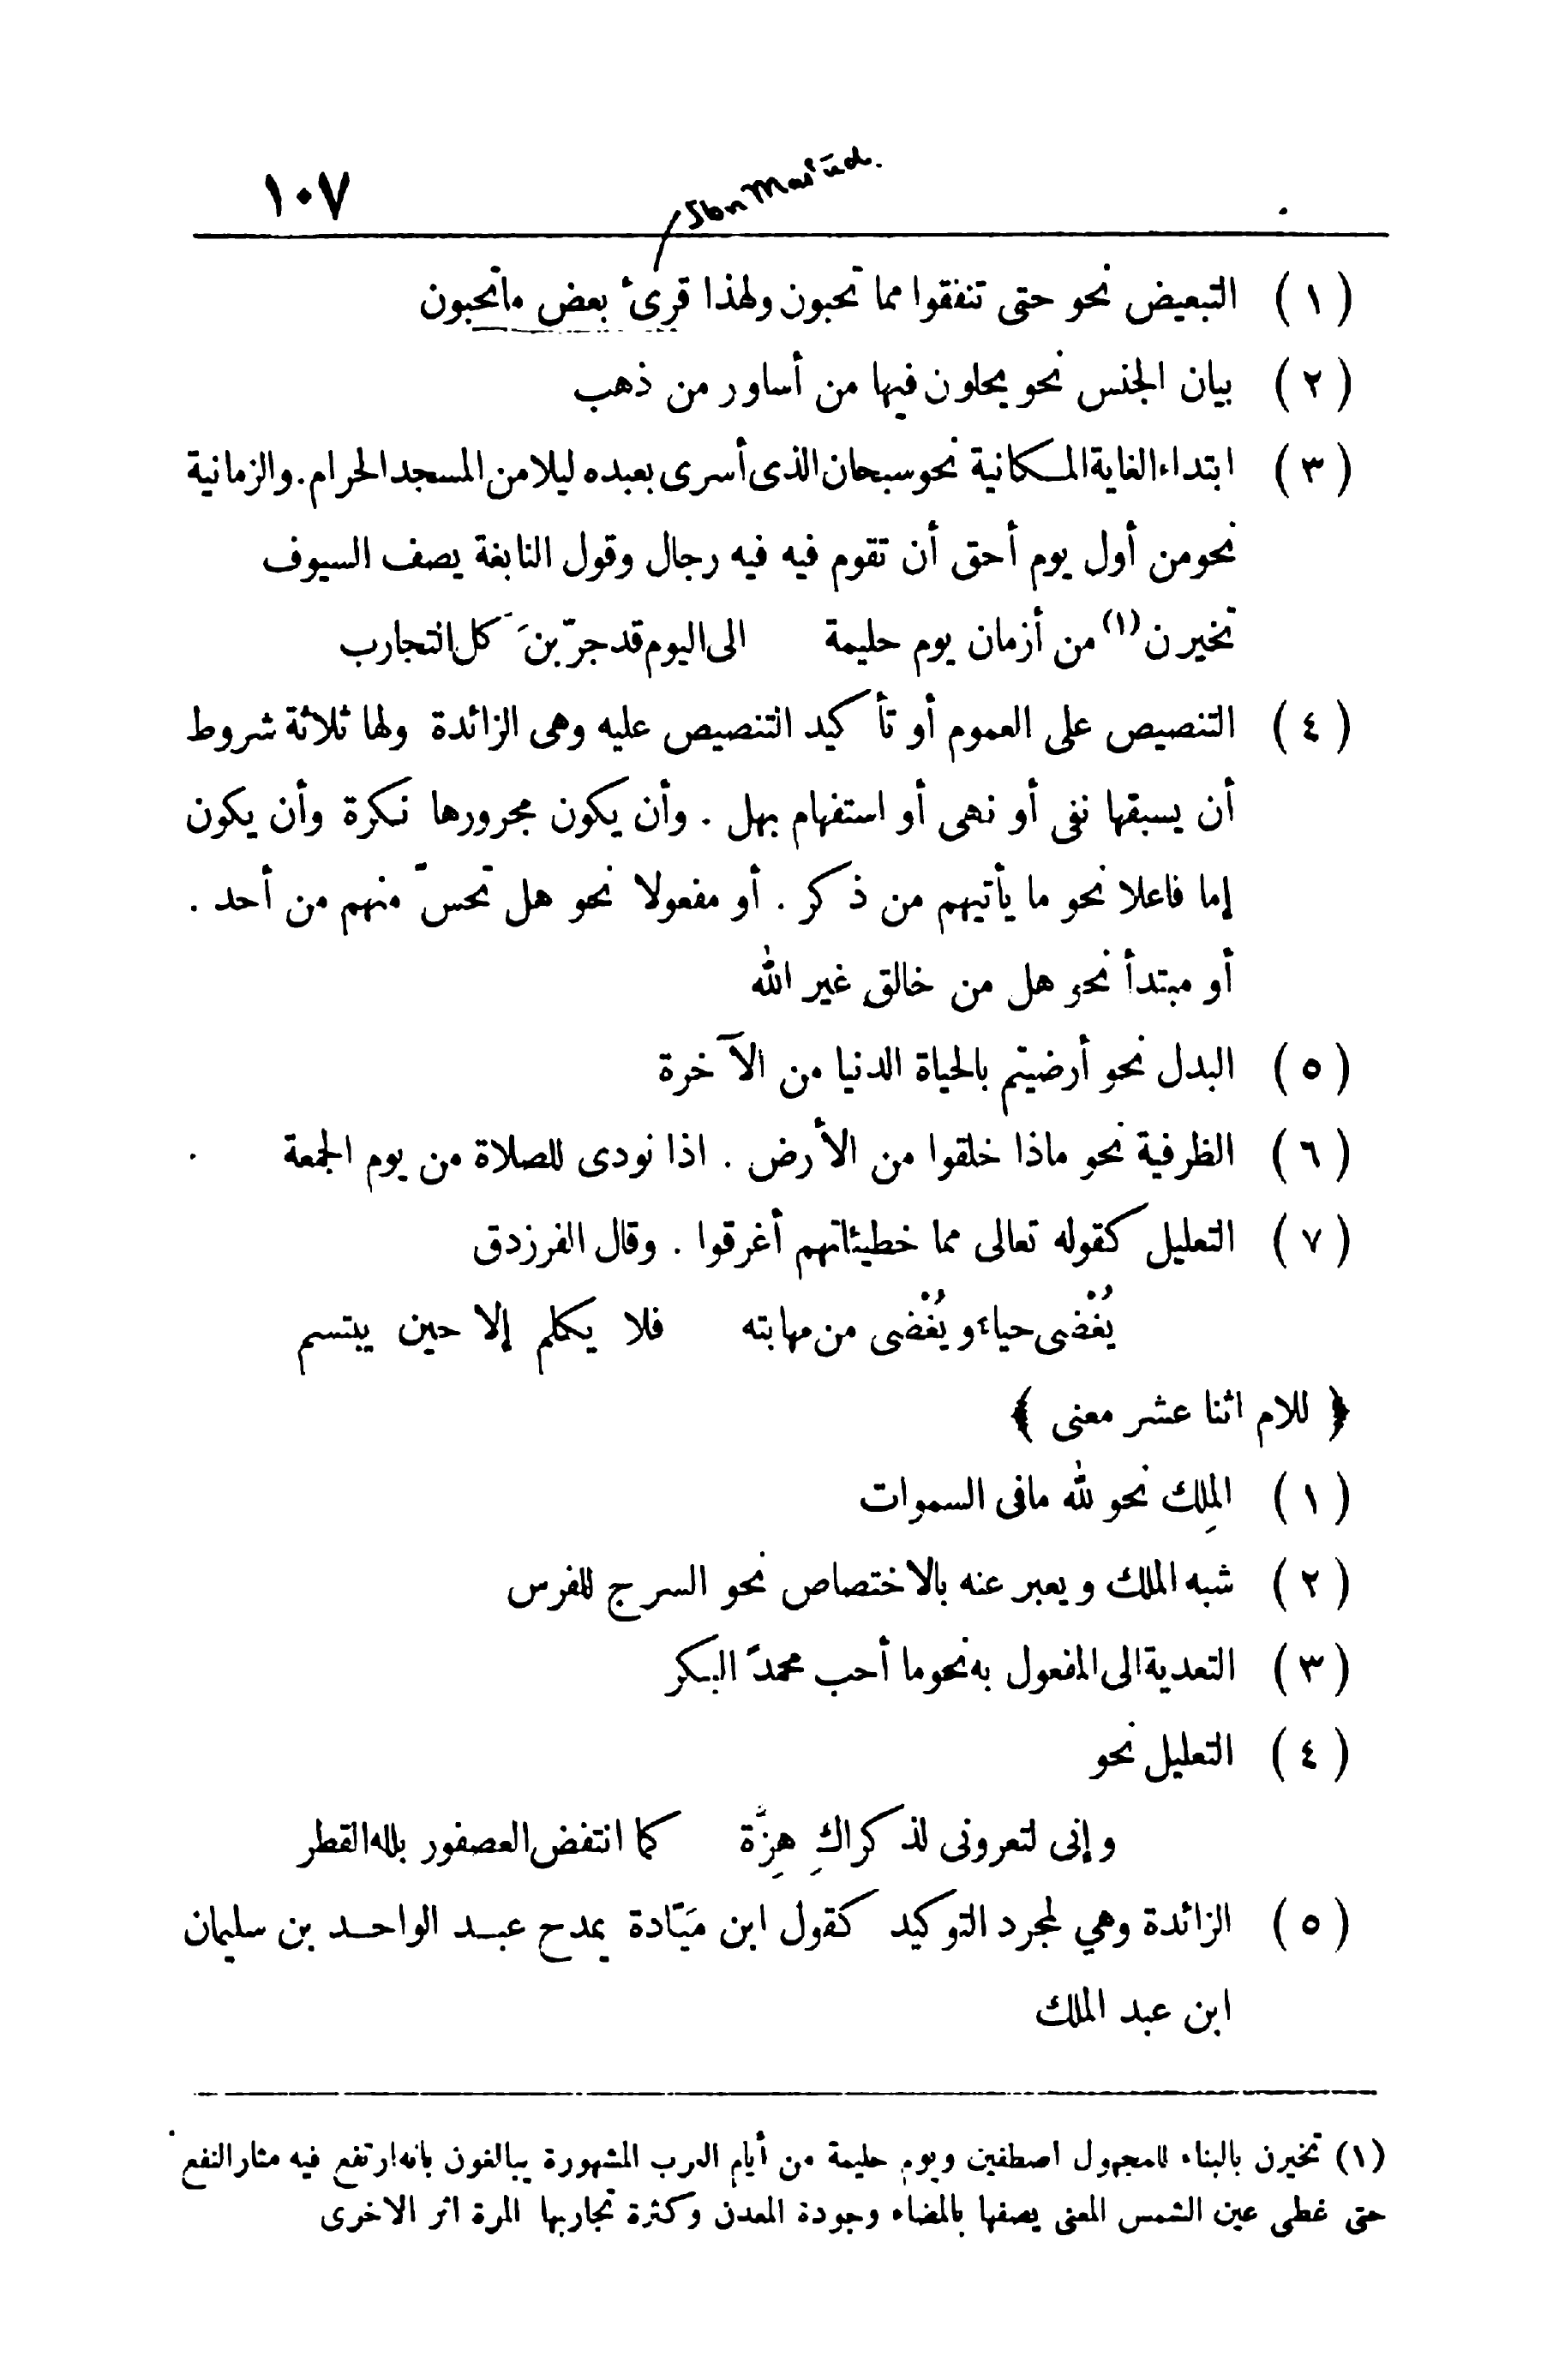 ١٠٧
Ibn Mas'ūd.
(١) التبعيض نحو حتى تنفقوا مما تحبون ولهذا قرئ بعض ماتحبون
(٢) بيان الجنس نحو يحلون فيها من أساور من ذهب
(٣) ابتداء الغاية المكانية نحو سبحان الذى أسرى بعبده ليلا من المسجد الحرام. والزمانية
نحو من أول يوم أحق أن تقوم فيه فيه رجال وقول النابغة يصف السيوف
تخيرن(١) من أزمان يوم حليمة الى اليوم قد جرّبنَ كل التجارب
(٤) التنصيص على العموم أو تأكيد التنصيص عليه وهى الزائدة ولها ثلاثة شروط
أن يسبقها نفى أو نهى أو استفهام بهل . وأن يكون مجرورها نكرة وأن يكون
إما فاعلا نحو ما يأتيهم من ذكر . أو مفعولا نحو هل تحسّ منهم من أحد .
أو مبتدأ نحو هل من خالق غير الله
(٥) البدل نحو أرضيتم بالحياة الدنيا من الآخرة
(٦) الظرفية نحو ماذا خلقوا من الأرض . اذا نودى للصلاة من يوم الجمعة
(٧) التعليل كقوله تعالى مما خطيئاتهم أغرقوا . وقال الفرزدق
يُغْضى حياء ويُغْضى من مهابته فلا يكلم إلا حين يبتسم
﴿ للام اثنا عشر معنى ﴾
(١) المِلك نحو لله مافى السموات
(٢) شبه الملك ويعبر عنه بالاختصاص نحو السرج للفرس
(٣) التعدية الى المفعول به نحو ما أحب محمدً البكر
(٤) التعليل نحو
وإنى لتعرونى لذكراكِ هِزَّة كما انتفض العصفور بلله القطر
(٥) الزائدة وهي لمجرد التوكيد كقول ابن مَيّادة يمدح عبد الواحد بن سليمان
ابن عبد الملك
(١) تخيرن بالبناء للمجهول اصطفين ويوم حليمة من أيام العرب المشهورة يبالغون بانه ارتفع فيه مثار النقع
حتى غطى عين الشمس المعنى يصفها بالمضاء وجودة المعدن وكثرة تجاربها المرة اثر الاخرى